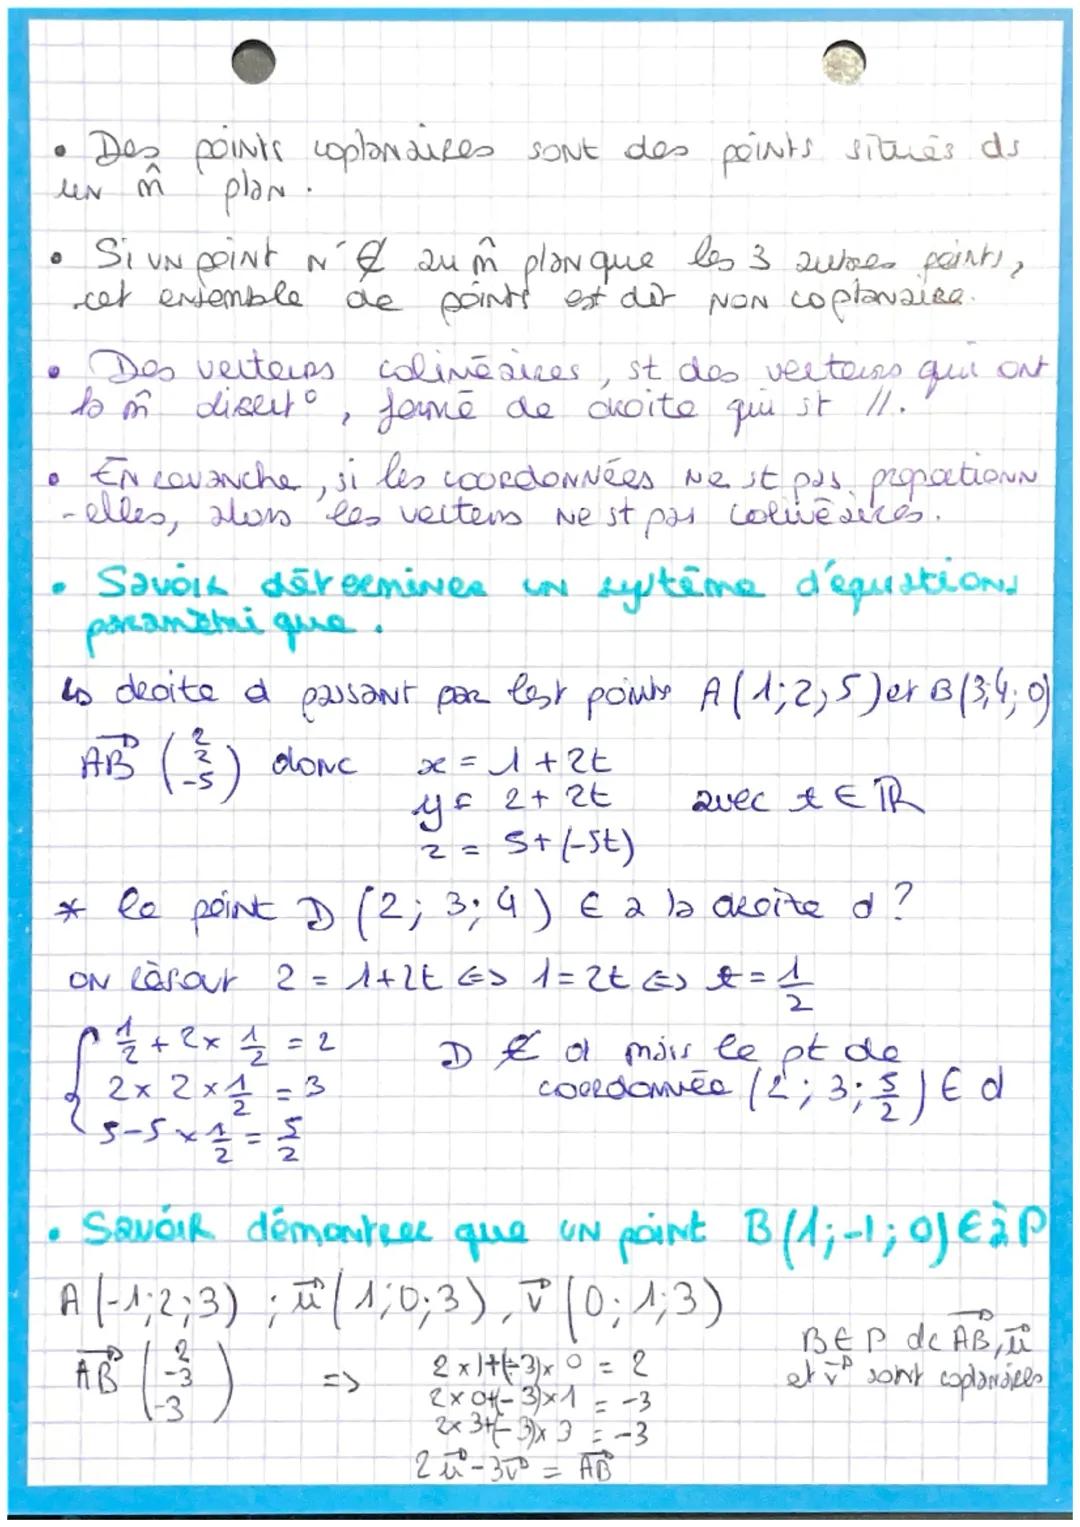 • Des points coplanaires sont des points situés ds
un m̂ plan.
• Si un point n'∉ au m̂ plan que les 3 autres points,
cet ensemble de points est dit non coplanaire.
• Des vecteurs colinéaires, st des vecteurs qui ont
la m̂ direct°, formé de droite qui st //.
• En revanche, si les coordonnées ne st pas proportionn
-elles, alors les vecteurs ne st pas colinéaires.
• Savoir déterminer un système d'équations
paramétrique.
↳ droite d passant par les points A(1;2;5) et B(3;4;0)
AB→ (2 2 -5) donc x = 1 + 2t
y = 2 + 2t avec t ∈ ℝ
z = 5 + (-5t)
* le point D (2; 3; 4) ∈ a la droite d ?
on résout 2 = 1+2t ⇔ 1 = 2t ⇔ t = 1/2
{ 1/2 + 2 × 1/2 = 2
2 × 2 × 1/2 = 3
5 - 5 × 1/2 = 5/2
D ∉ d mais le pt de
coordonnée (2; 3; 5/2) ∈ d
• Savoir démontrer que un point B(1;-1;0) ∈ à P
A(-1;2;3) ; u→(1;0;3), v→(0;1;3)
AB→ (2 -3 -3) => 2×1+(-3)×0 = 2
2×0+(-3)×1 = -3
2×3+(-3)×3 = -3
2u→ - 3v→ = AB→
B∈P dc AB→, u→
et v→ sont coplanaires